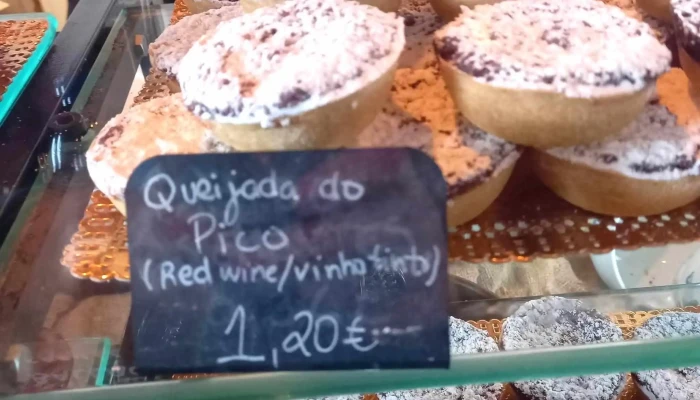 Queijada do
Pico
(Red wine/vinho tinto)
1,20€